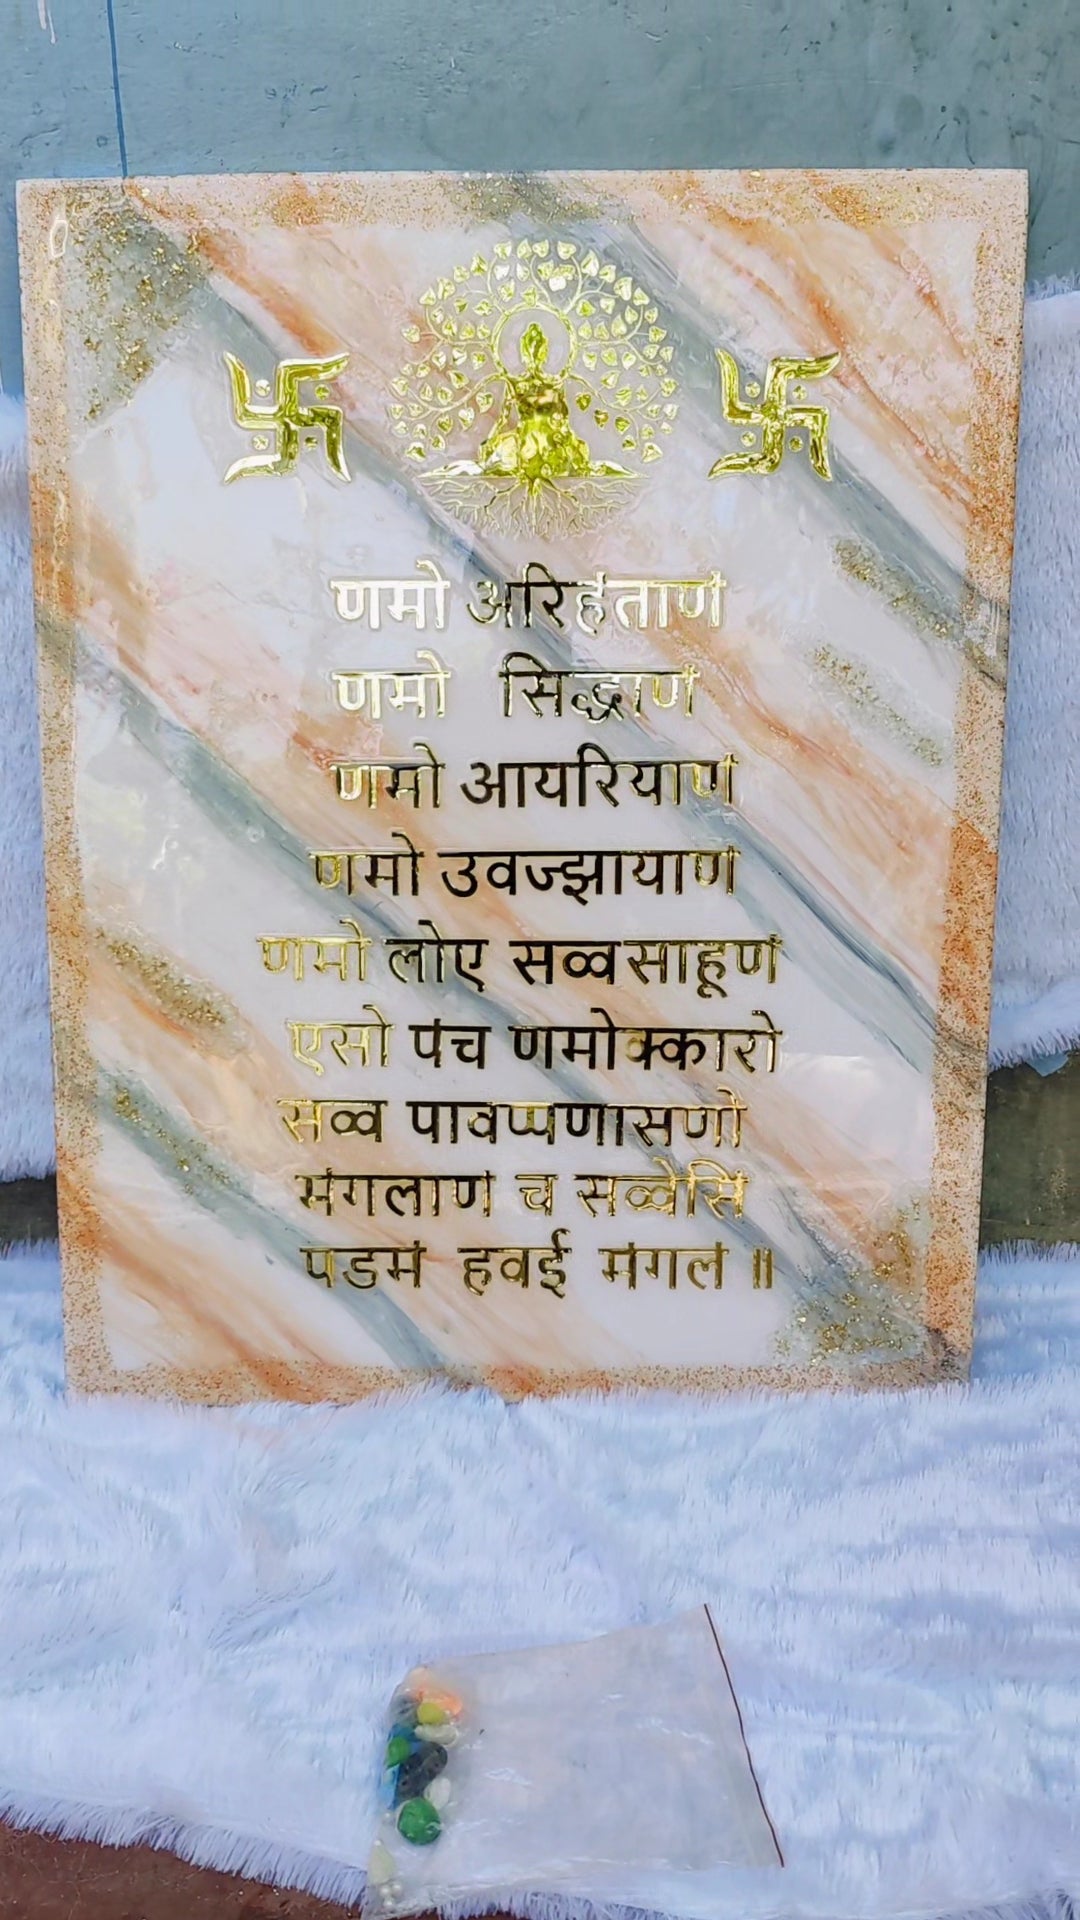 णमो अरिहंताणं
णमो सिद्धाणं
णमो आयरियाणं
णमो उवज्झायाणं
णमो लोए सव्वसाहूणं
एसो पंच णमोक्कारो
सव्व पावप्पणासणो
मंगलाणं च सव्वेसिं
पडमं हवई मंगलं ॥